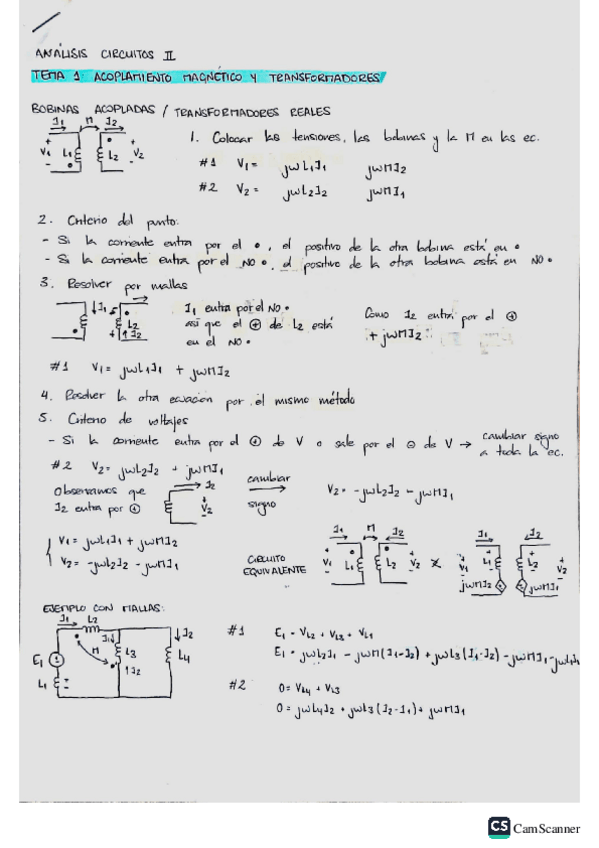 ANÁLISIS CIRCUITOS II
TEMA 1 ACOPLAMIENTO MAGNÉTICO Y TRANSFORMADORES
BOBINAS ACOPLADAS / TRANSFORMADORES REALES
I1 M I2
+ V1 - L1 L2 + V2 -
1. Colocar las tensiones, las bobinas y la M en las ec.
#1 V1 = jwL1I1 jwMI2
#2 V2 = jwL2I2 jwMI1
2. Criterio del punto:
- Si la corriente entra por el •, el positivo de la otra bobina está en •
- Si la corriente entra por el NO •, el positivo de la otra bobina está en NO •
3. Resolver por mallas
I1 L2 I2
I1 entra por el NO •
así que el ⊕ de L2 está
en el NO •
Como I2 entra por el ⊕
+ jwMI2
#1 V1 = jwL1I1 + jwMI2
4. Resolver la otra ecuación por el mismo método
5. Criterio de voltajes
- Si la corriente entra por el ⊕ de V o sale por el ⊖ de V → cambiar signo
a toda la ec.
#2 V2 = jwL2I2 + jwMI1
Observamos que
I2 entra por ⊕
I2
+ V2 -
cambiar
signo
V2 = -jwL2I2 - jwMI1
V1 = jwL1I1 + jwMI2
V2 = -jwL2I2 - jwMI1
CIRCUITO
EQUIVALENTE
I1 M I2
+ V1 - L1 L2 + V2 -
I1 I2
+ V1 - L1 L2 + V2 -
jwMI2 jwMI1
EJEMPLO CON MALLAS:
I1 L2
E1 M I1 L3 I2 L4
L1 I2
#1 E1 = VL2 + VL3 + VL1
E1 = jwL2I1 - jwM(I1-I2) + jwL3(I1-I2) - jwMI1
#2 0 = VL4 + VL3
0 = jwL4I2 + jwL3(I2-I1) + jwMI1
CS CamScanner